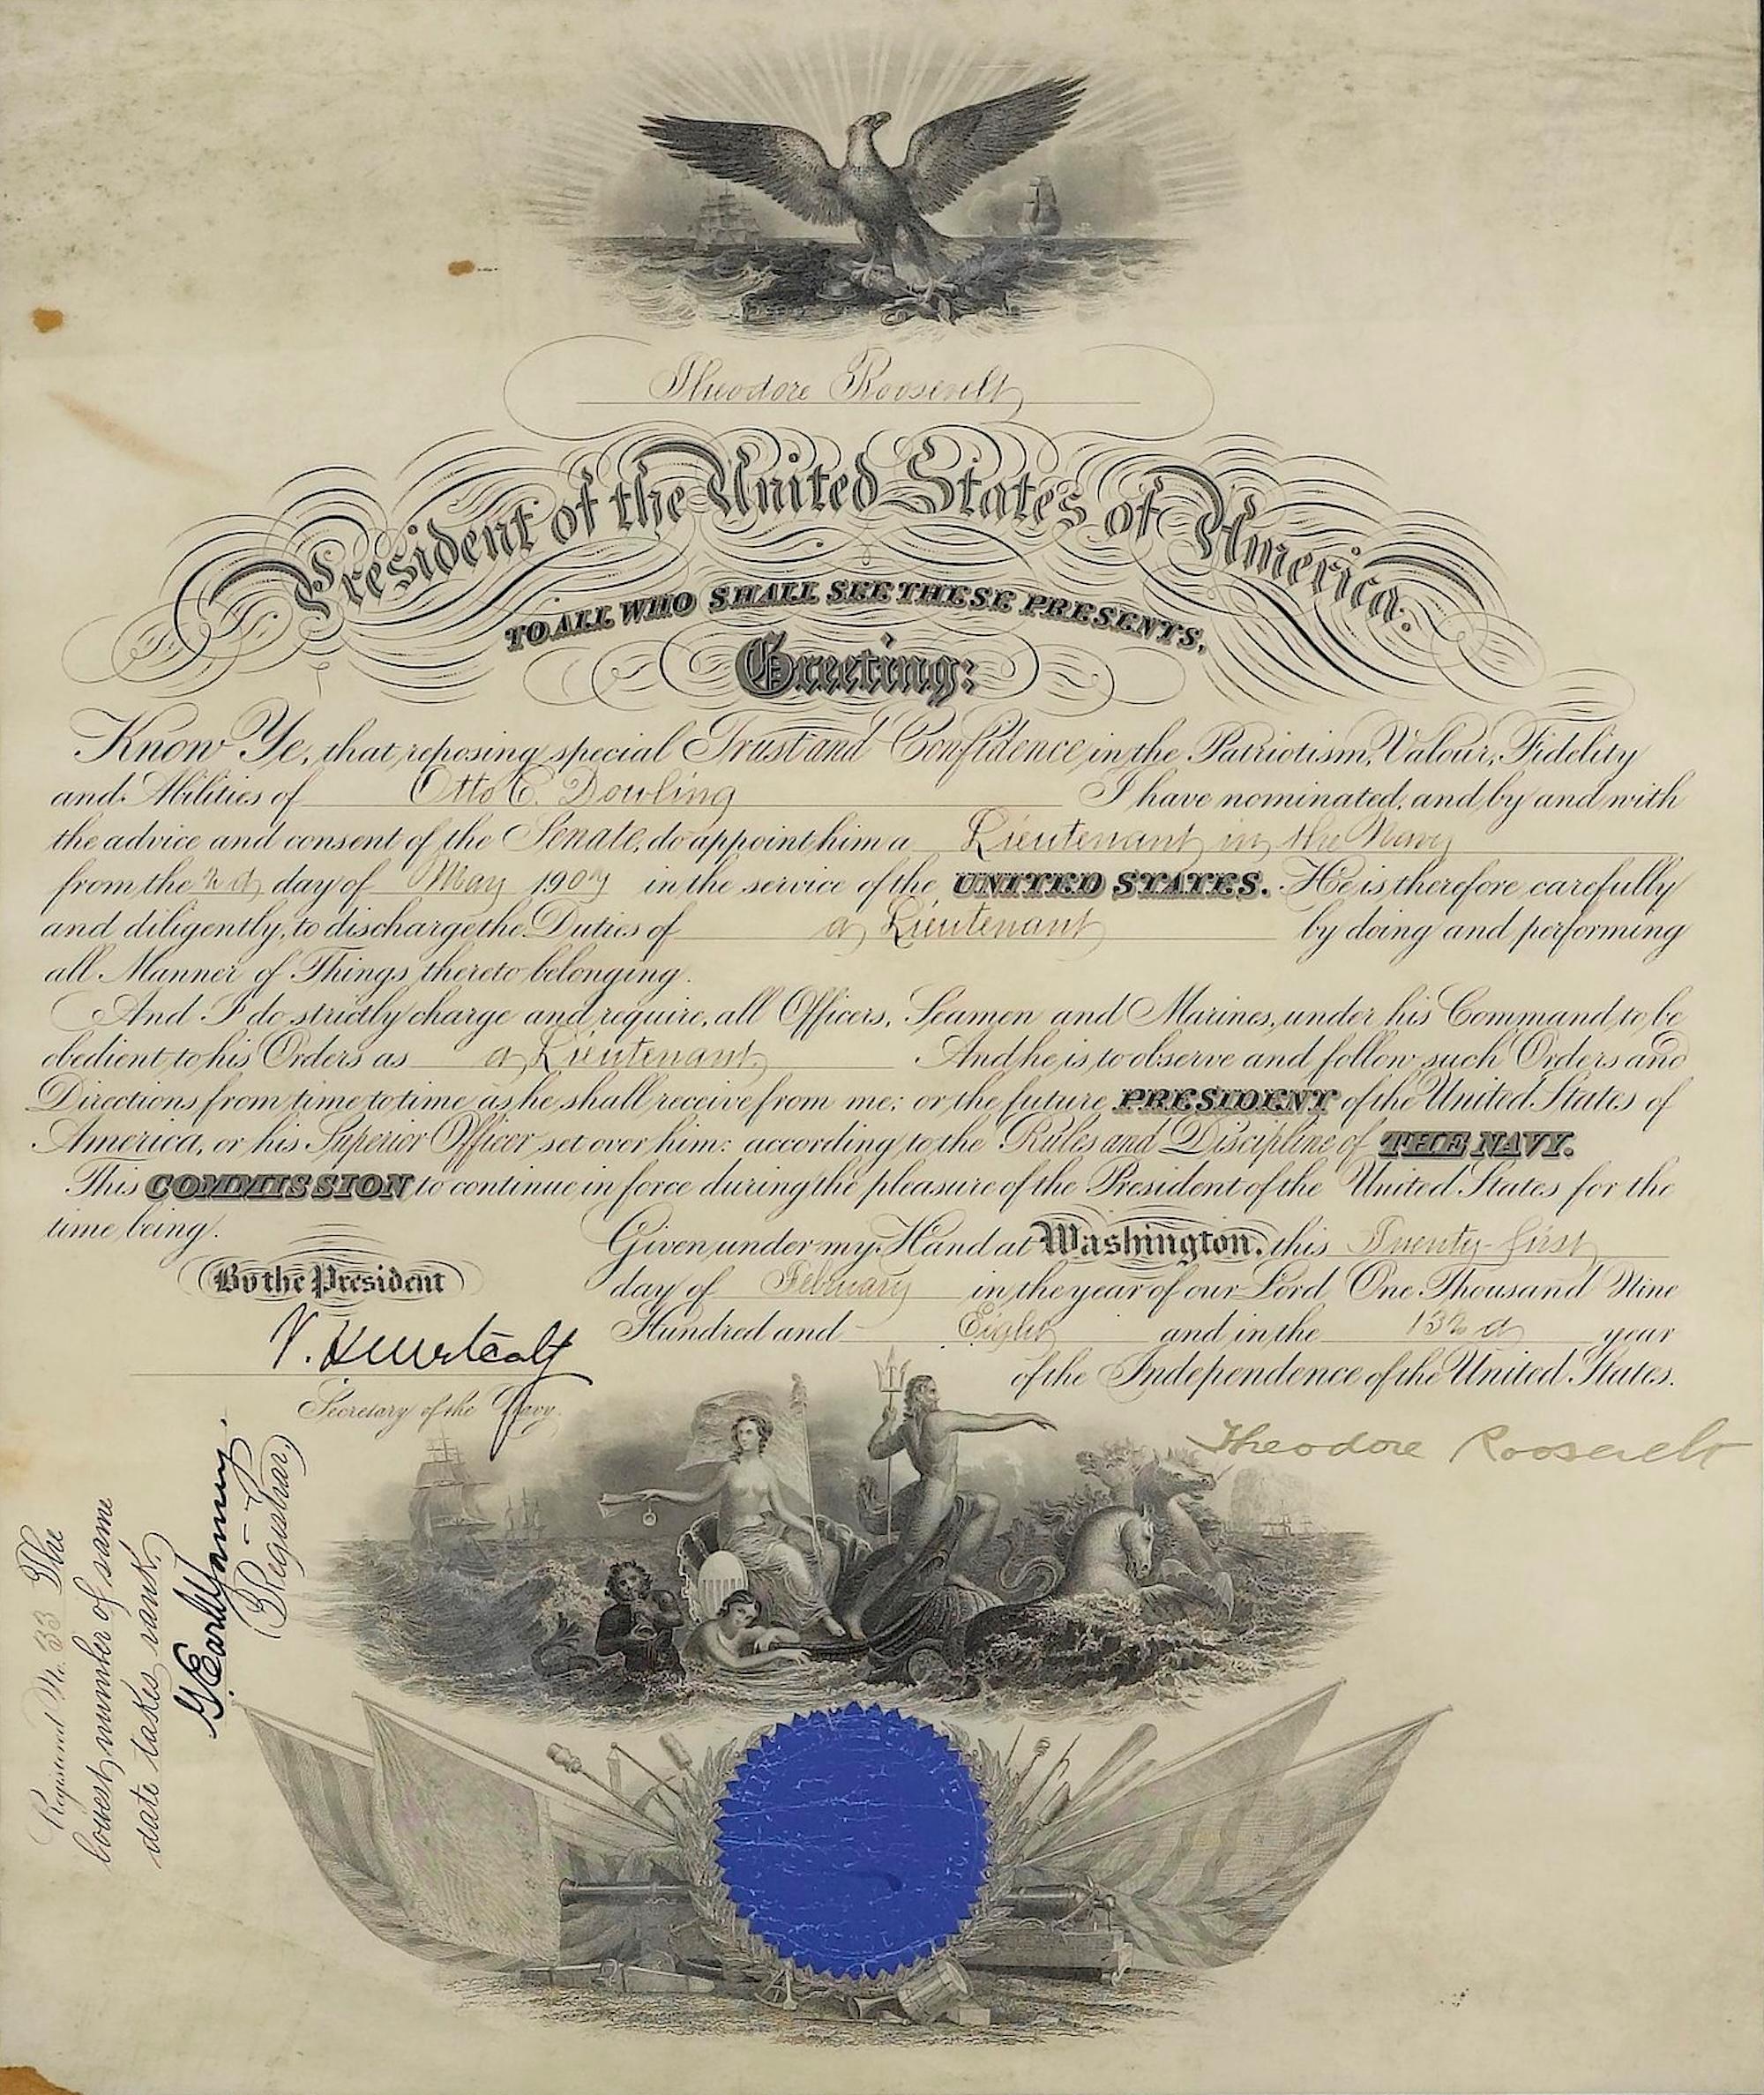 Theodore Roosevelt
President of the United States of America.
TO ALL WHO SHALL SEE THESE PRESENTS,
Greeting:
Know Ye, that reposing special Trust and Confidence in the Patriotism, Valour, Fidelity
and Abilities of Otto C. Dowling I have nominated, and by and with
the advice and consent of the Senate, do appoint him a Lieutenant in the Navy
from the 2d day of May 1907 in the service of the UNITED STATES. He is therefore carefully
and diligently, to discharge the Duties of a Lieutenant by doing and performing
all Manner of Things thereto belonging.
And I do strictly charge and require, all Officers, Seamen and Marines, under his Command, to be
obedient to his Orders as a Lieutenant. And he is to observe and follow such Orders and
Directions from time to time as he shall receive from me; or the future PRESIDENT of the United States of
America, or his Superior Officer set over him: according to the Rules and Discipline of THE NAVY.
This COMMISSION to continue in force during the pleasure of the President of the United States for the
time being.
Given under my Hand at Washington, this Twenty-first
day of February in the year of our Lord One Thousand Nine
Hundred and Eight and in the 132d year
of the Independence of the United States.
By the President
V. H. Metcalf
Secretary of the Navy.
Theodore Roosevelt
Registered No. 33 The
lowest number of same
date takes rank.
(Registrar)